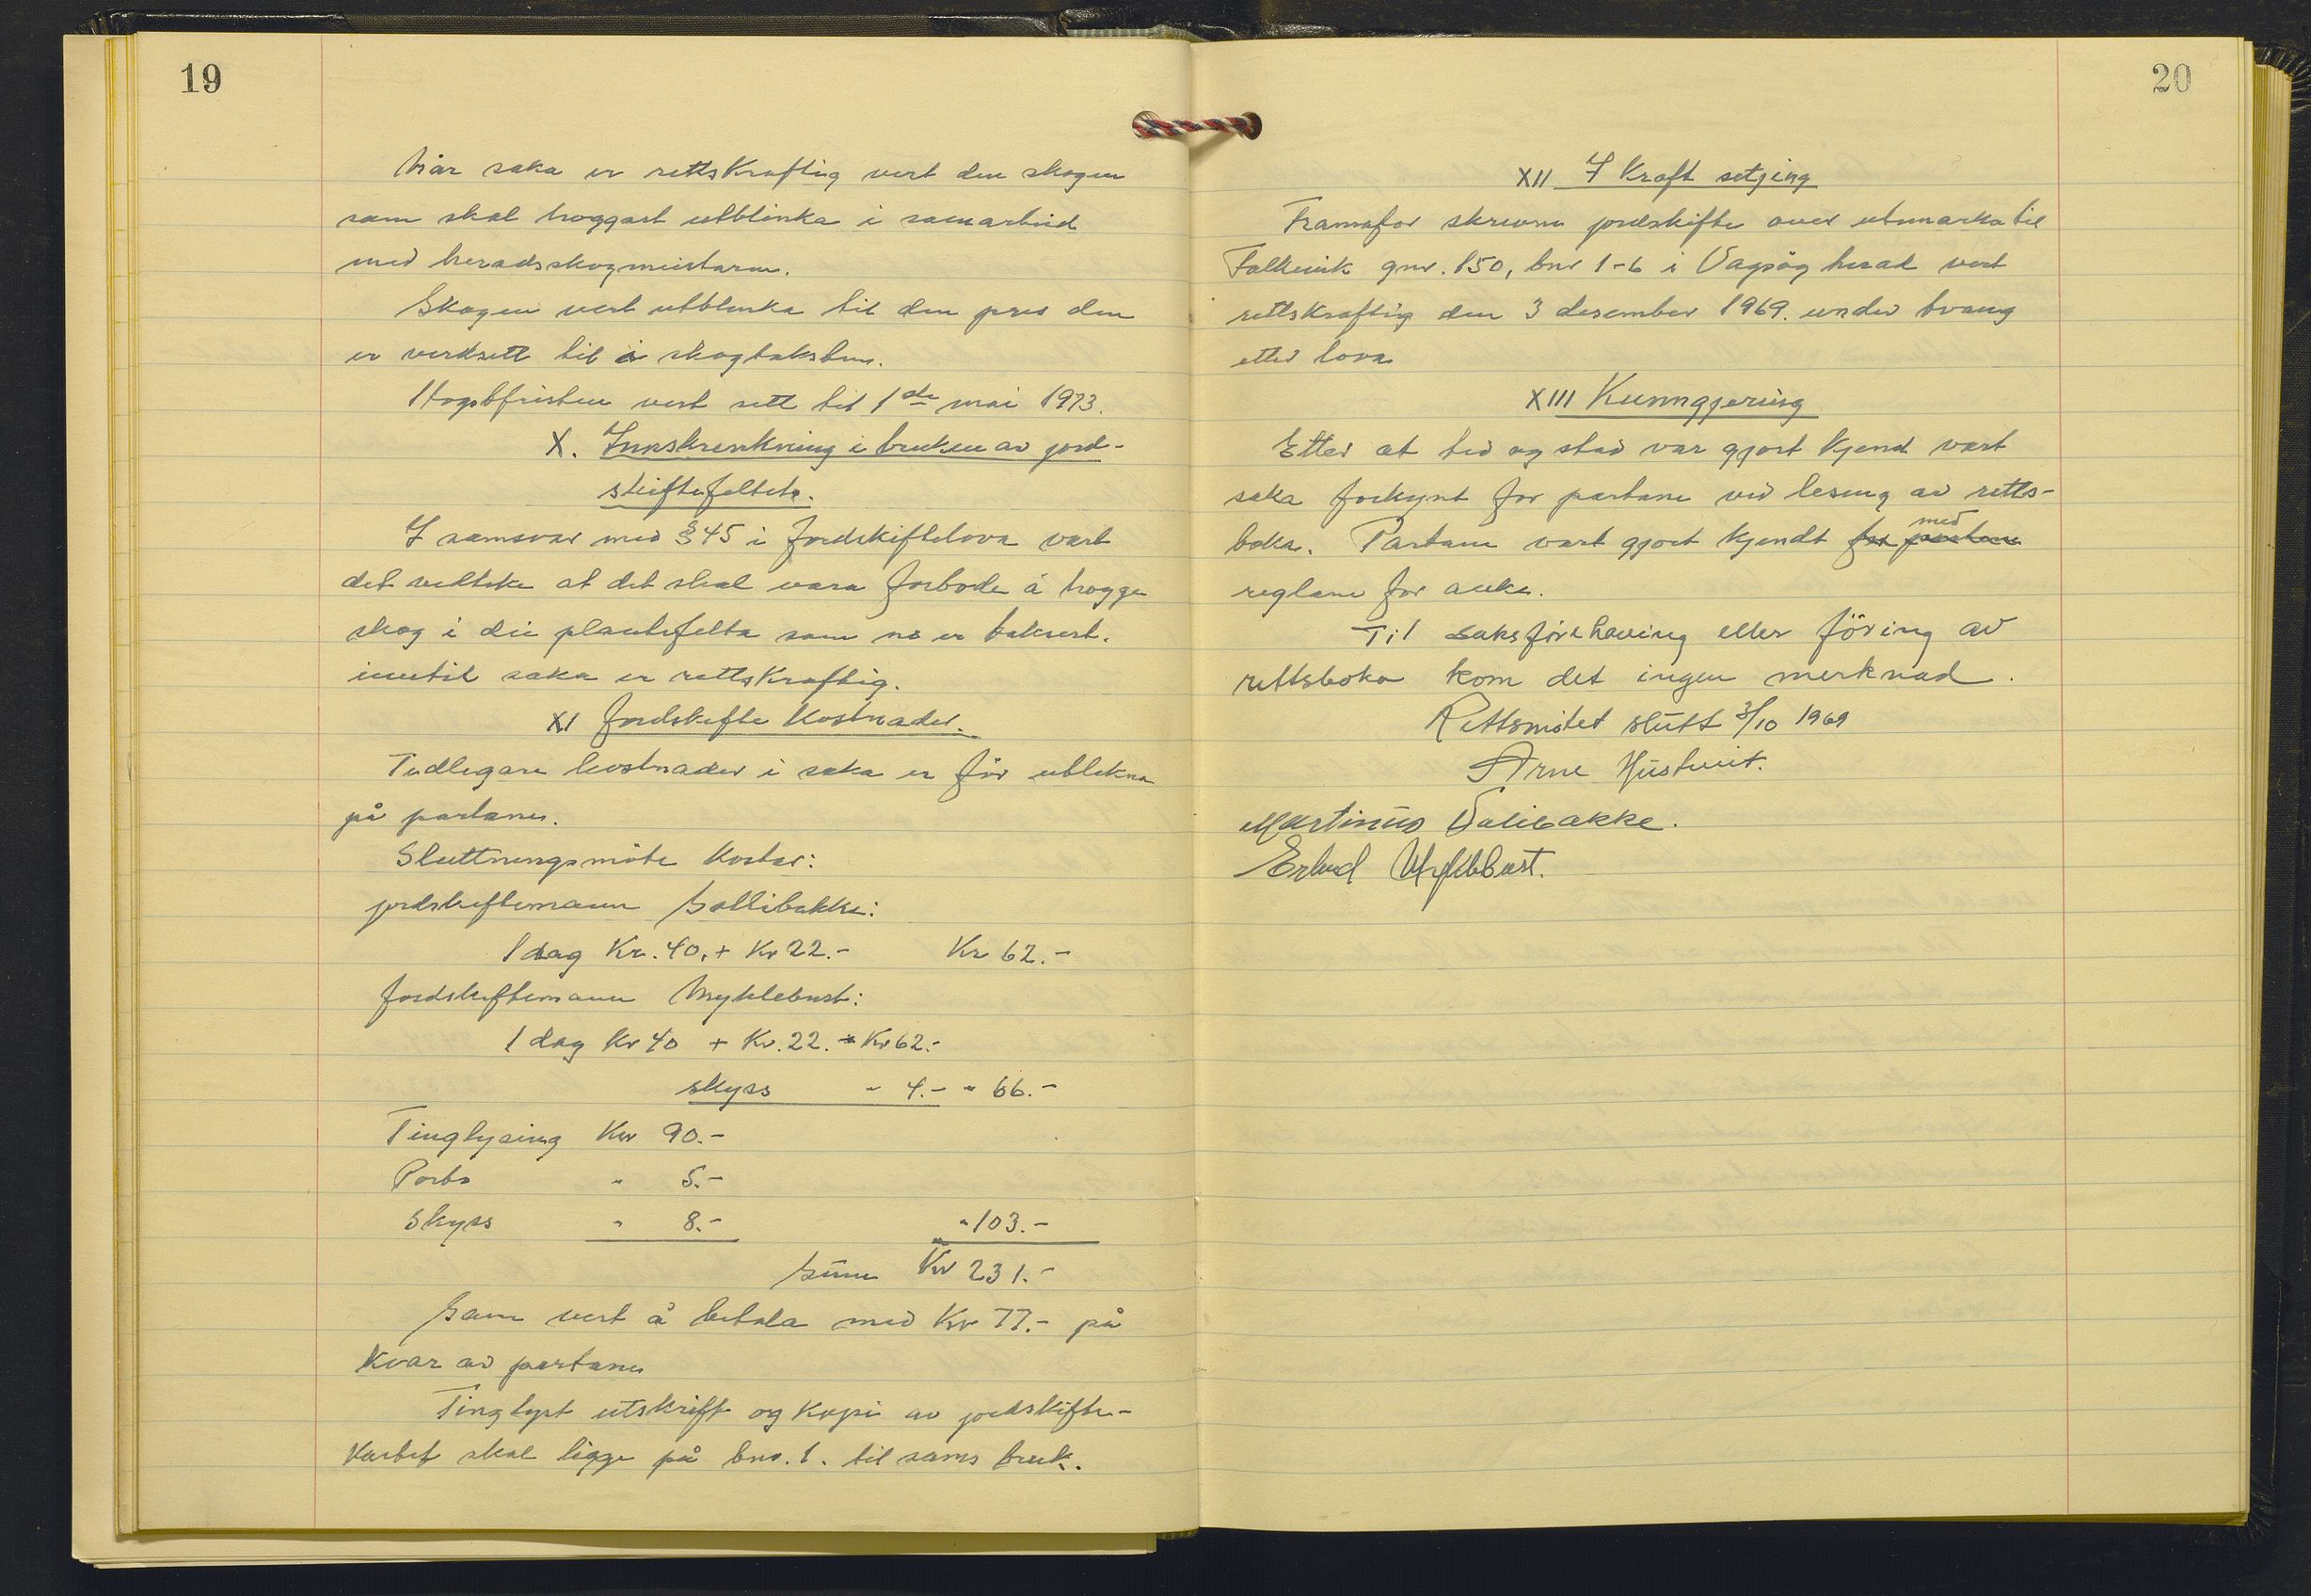 19
Når saka er rettskraftig vert den skogen
som skal hoggast utblinka i samarbeid
med heradsskogmeistaren.
Skogen vert utblinka til den pris den
er verdsett til i skogtaksten.
Hogstfristen vert sett til 1ste mai 1973.
X. Innskrenkning i bruken av jord-
skiftefeltet.
I samsvar med § 45 i Jordskiftelova vart
det vedteke at det skal vara forbode å hogge
skog i dei plantefelta som no er taksert.
inntil saka er rettskraftig.
XI Jordskifte kostnader.
Tidlegare kostnader i saka er för utlikna
på partane.
Sluttningsmöte kostar:
jordskiftemann Sallibakke:
1 dag Kr. 40,+ Kr 22.- Kr 62.-
Jordskiftemann Myklebust:
1 dag Kr 40 + Kr. 22. = Kr 62.-
skyss " 4.- " 66.-
Tinglysing Kr 90.-
Porto " 5.-
Skyss " 8.- " 103.-
Sum Kr 231.-
Som vert å betala med Kr 77.- på
kvar av partane
Tinglyst utskrift og kopi av jordskifte-
kartet skal ligge på bnr. 1. til sams bruk.
20
XII I kraft setjing
Framafor skrevne jordskifte over utmarka til
Falkevik gnr. 150, bnr 1-6 i Vagsöy herad vert
rettskraftig den 3 desember 1969. under tvang
etter lova
XIII Kunngjering
Etter at tid og stad var gjort kjend vart
saka forkynt for partane ved lesing av retts-
boka. Partane vart gjort kjendt for partane med
reglane for anke.
Til saksförehaving eller föring av
rettsboka kom det ingen merknad.
Rettsmötet slutt 3/10 1969
Arne Hustveit.
Martinus Salibakke.
Erlend Myklebust.